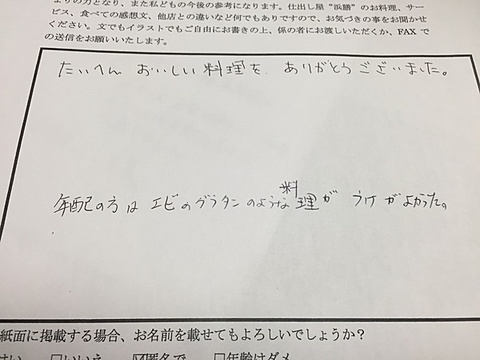 よりの力となり、また私どもの今後の参考になります。仕出し屋"浜膳"のお料理、サー
ビス、食べての感想文、他店との違いなど何でもありですので、お気づきの事をお聞かせ
ください。文でもイラストでもご自由にお書きの上、係の者にお渡しいただくか、FAX で
の送信をお願いいたします。
たいへん おいしい料理を ありがとうございました。
年配の方は エビのグラタンのような料理が うけがよかった。
紙面に掲載する場合、お名前を載せてもよろしいでしょうか?
はい □いいえ ☑匿名で □年齢はダメ